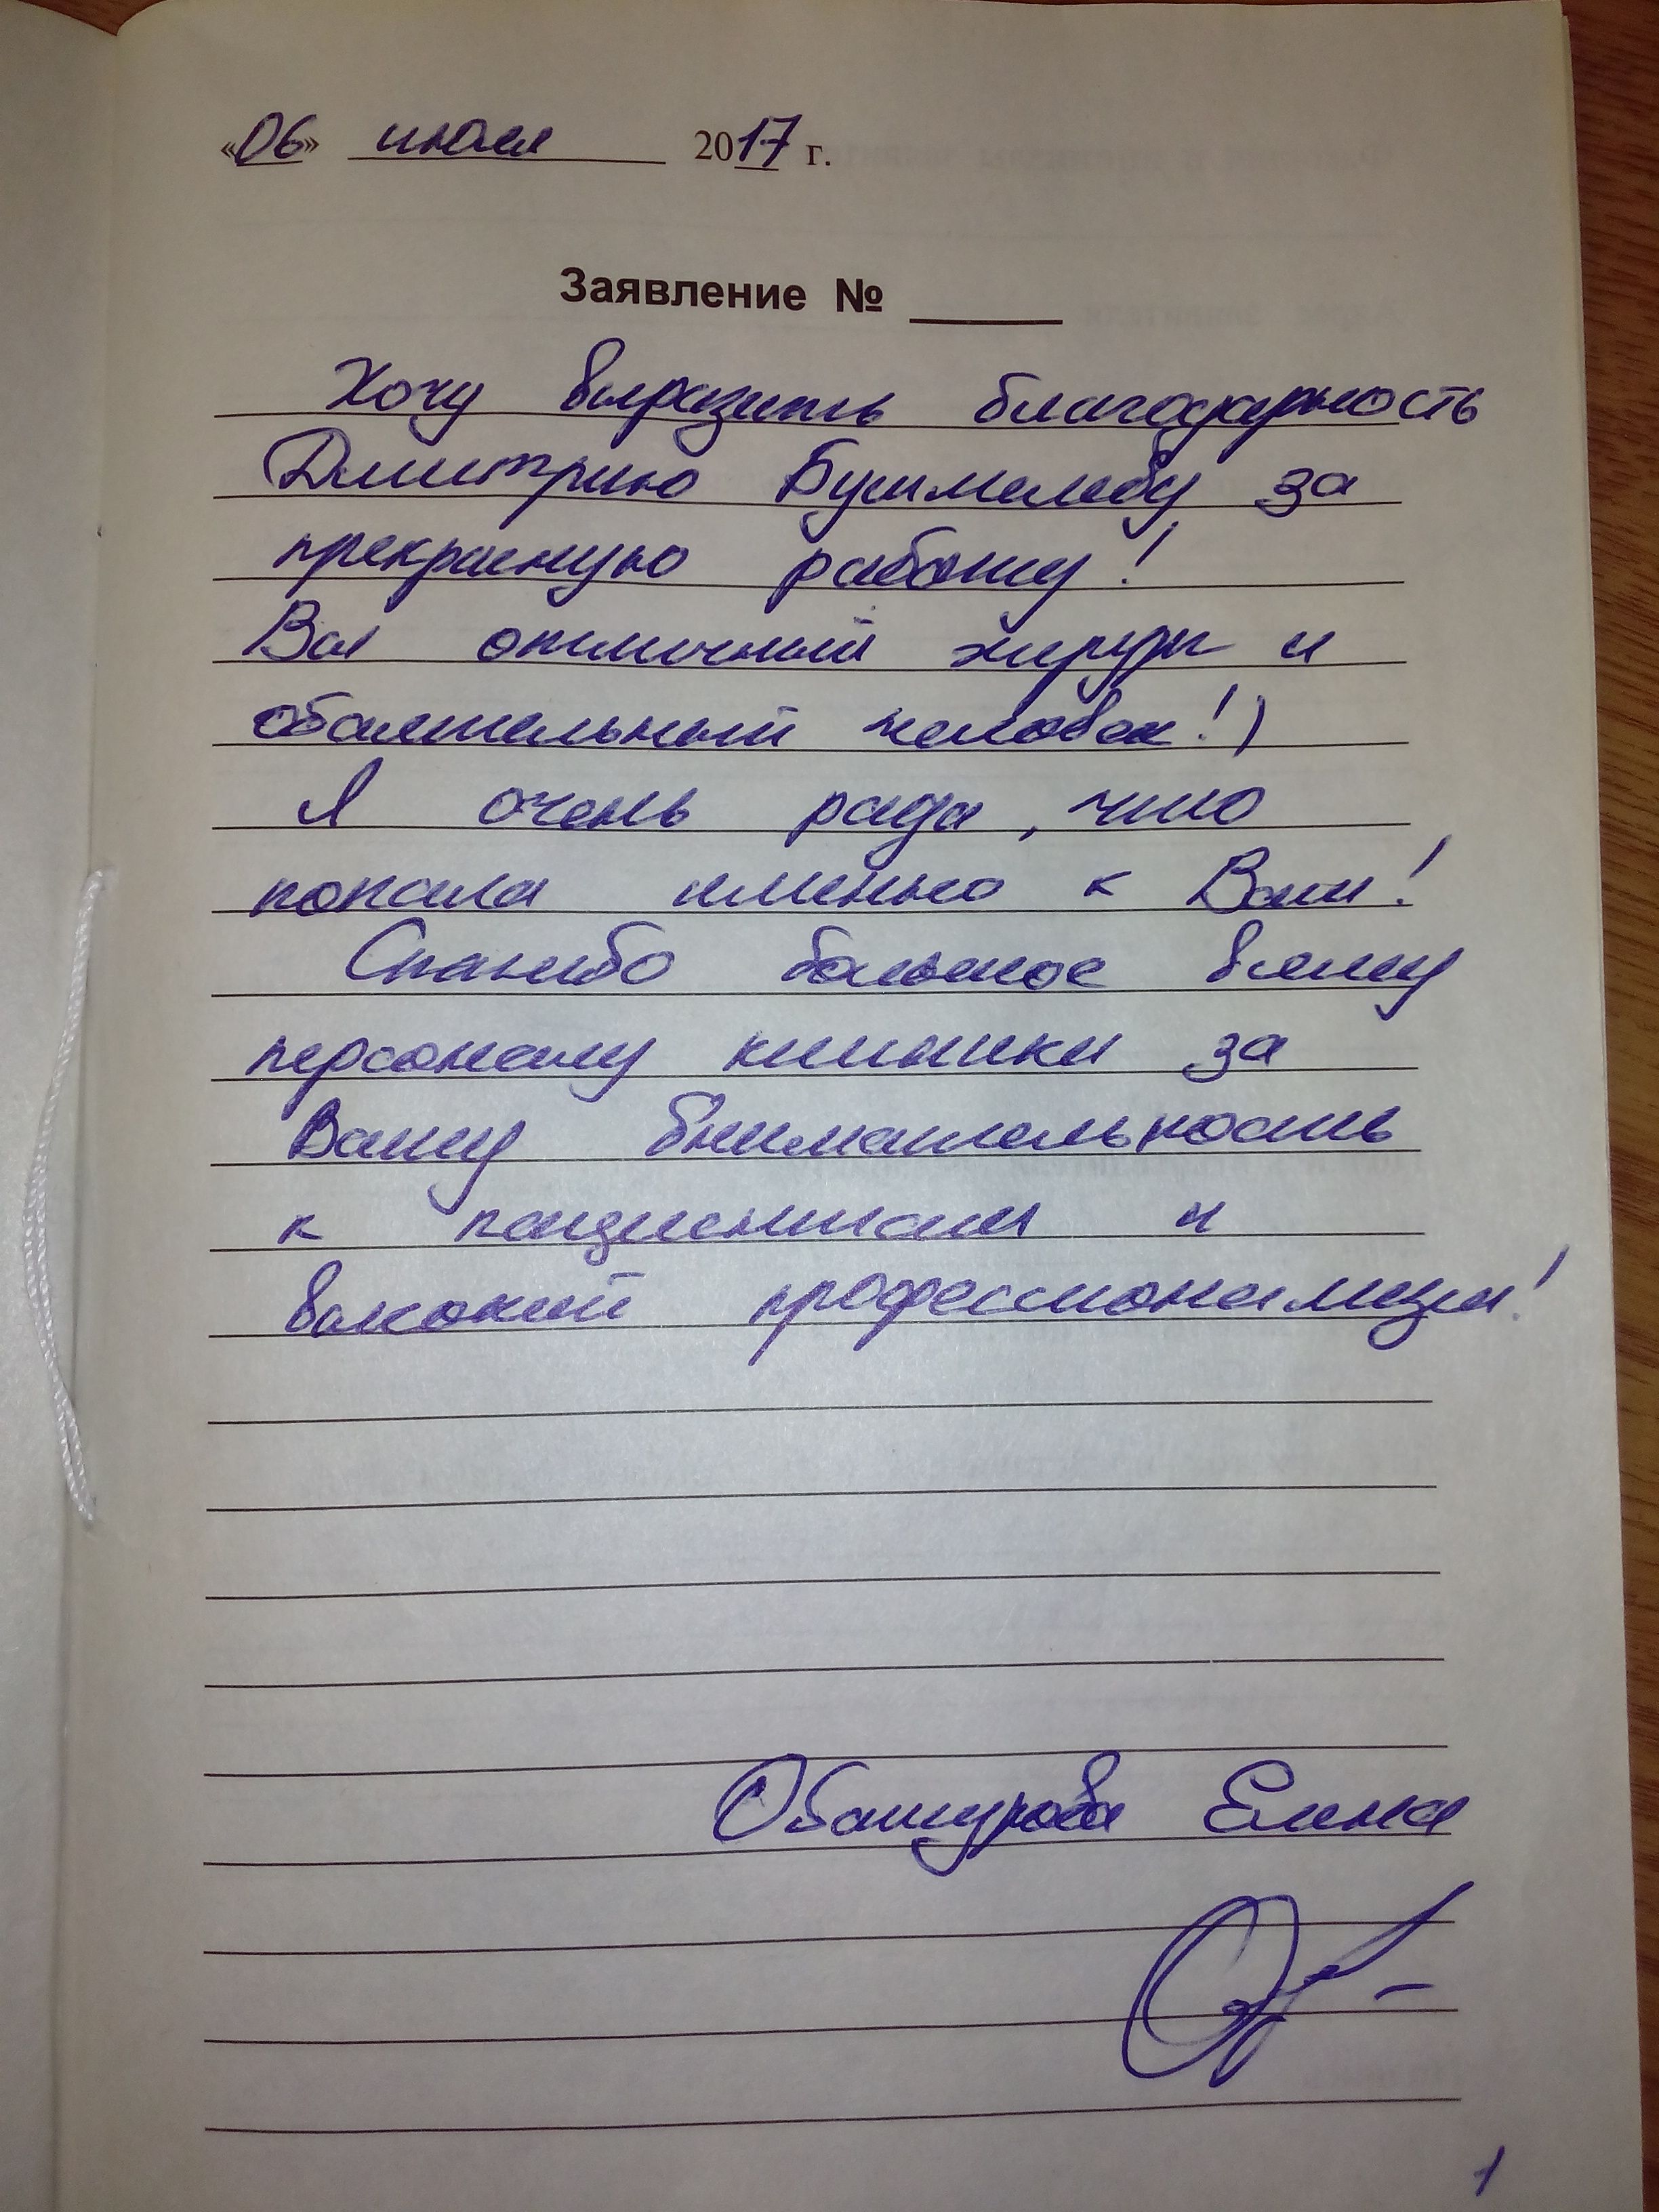 «06» июля 2017 г.
Заявление №
Хочу выразить благодарность
Дмитрию Бушмелеву за
прекрасную работу!
Вы отличный хирург и
обаятельный человек!)
Я очень рада, что
попала именно к Вам!
Спасибо большое всему
персоналу клиники за
Вашу внимательность
к пациентам и
высокий профессионализм!
Обашурова Елена
1